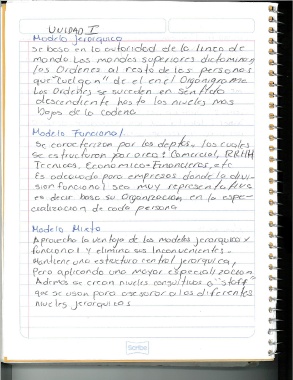 UNIDAD I
Modelo Jerarquico
Se basa en la autoridad de la linea de
mando. Los mandos superiores dictaminan
los Ordenes al resto de las personas
que "cuelgan" de el en el Organigrama
Las Ordenes se suceden en sentido
descendiente hasta los niveles mas
bajos de la cadena
Modelo Funcional
Se caracterizan por los deptos. los cuales
se estructuran por area: Comercial, RRHH
Tecnicos, Economicos Financieros, etc
Es adecuado para empresas donde la divi-
sion funcional sea muy representativa
es decir basa su Organizacion en la espe-
cializacion de cada persona
Modelo Mixto
Aprovecha la ventaja de los modelos jerarquico y
funcional y elimina sus inconvenientes.
Mantiene una estructura central jerarquica,
Pero aplicando una mayor especializacion
Ademas se crean niveles consultivos o "staff"
que se usan para asesorar a los diferentes
niveles jerarquicos
Scribe